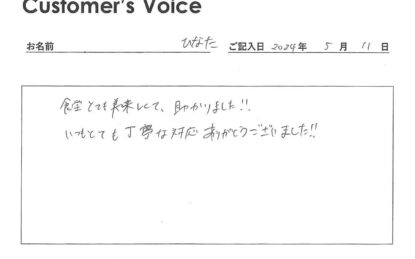 Customer's Voice
お名前 ひなた ご記入日 2024年 5月 11日
食堂とても美味しくて、助かりました!!
いつもとても丁寧な対応ありがとうございました!!